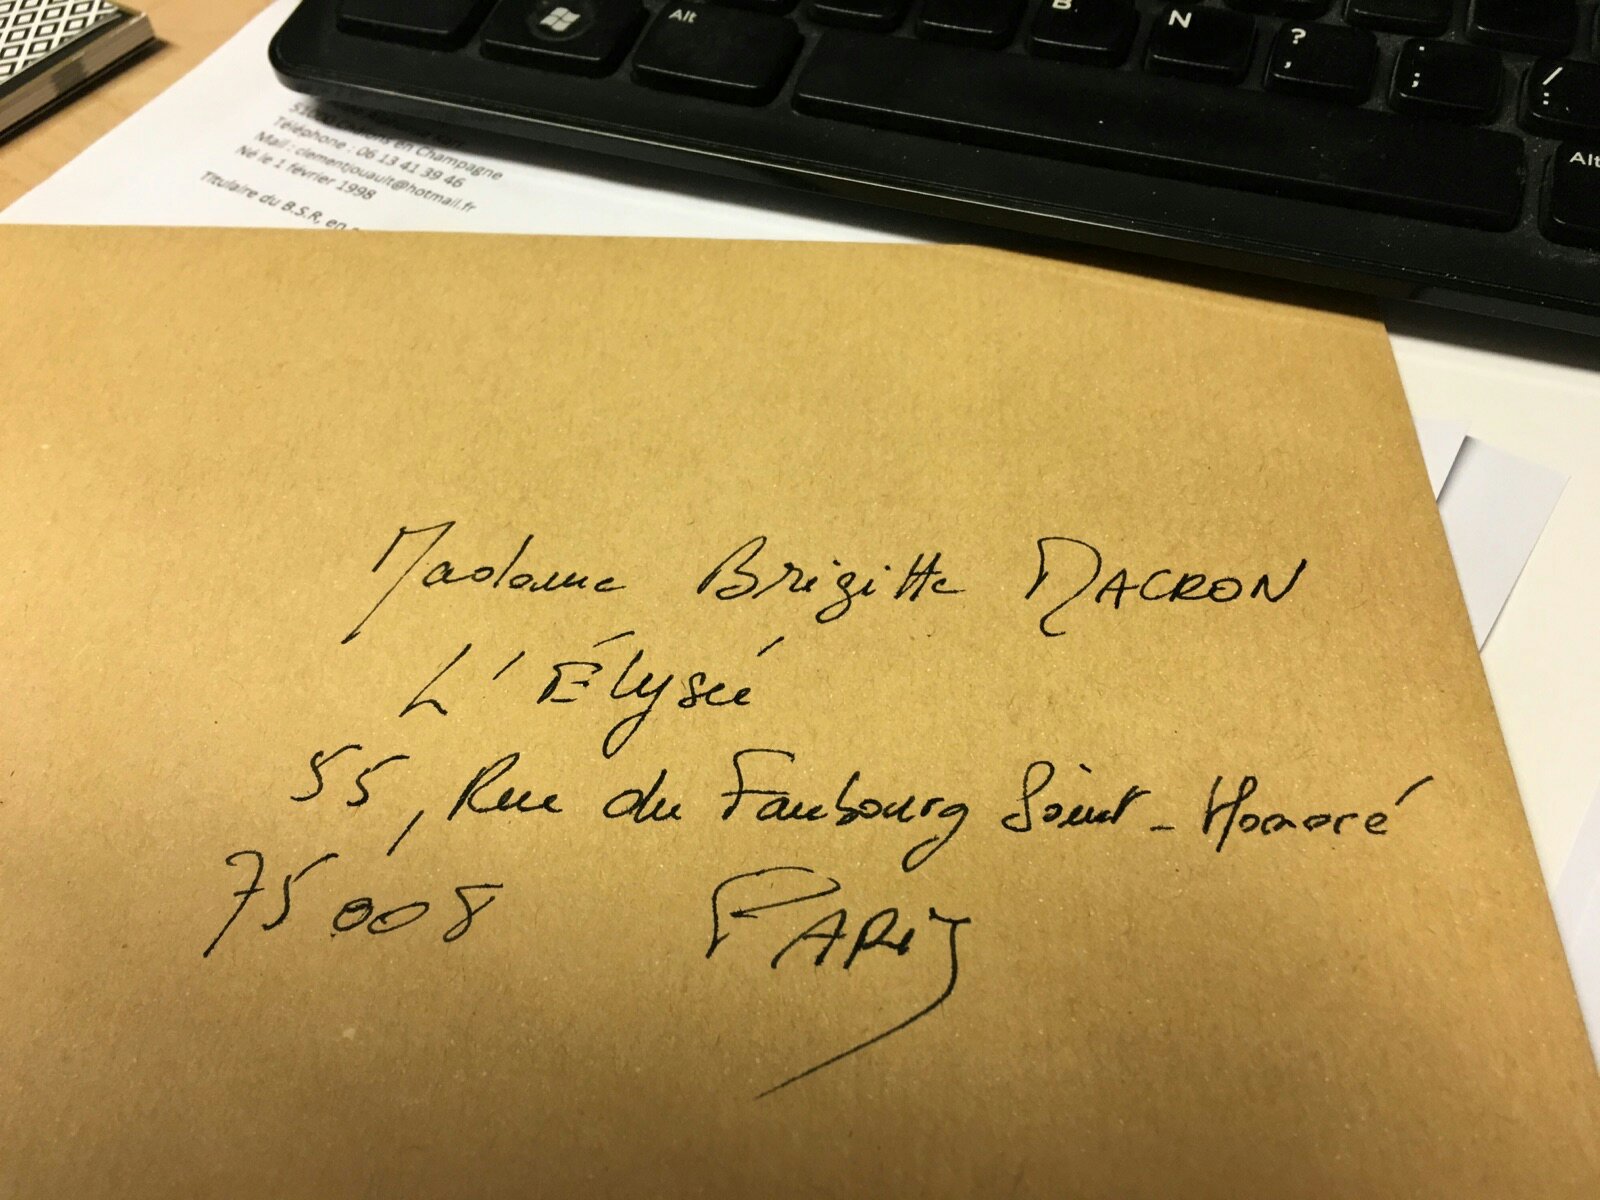 Alt
B
N
?
,
;
.
/
:
Alt
en Champagne
Téléphone : 06 13 41 39 46
Mail : clementjouault@hotmail.fr
Né le 1 février 1998
Titulaire du B.S.R, en
Madame Brigitte MACRON
L'Élysée
55, Rue du Faubourg Saint-Honoré
75008 PARIS